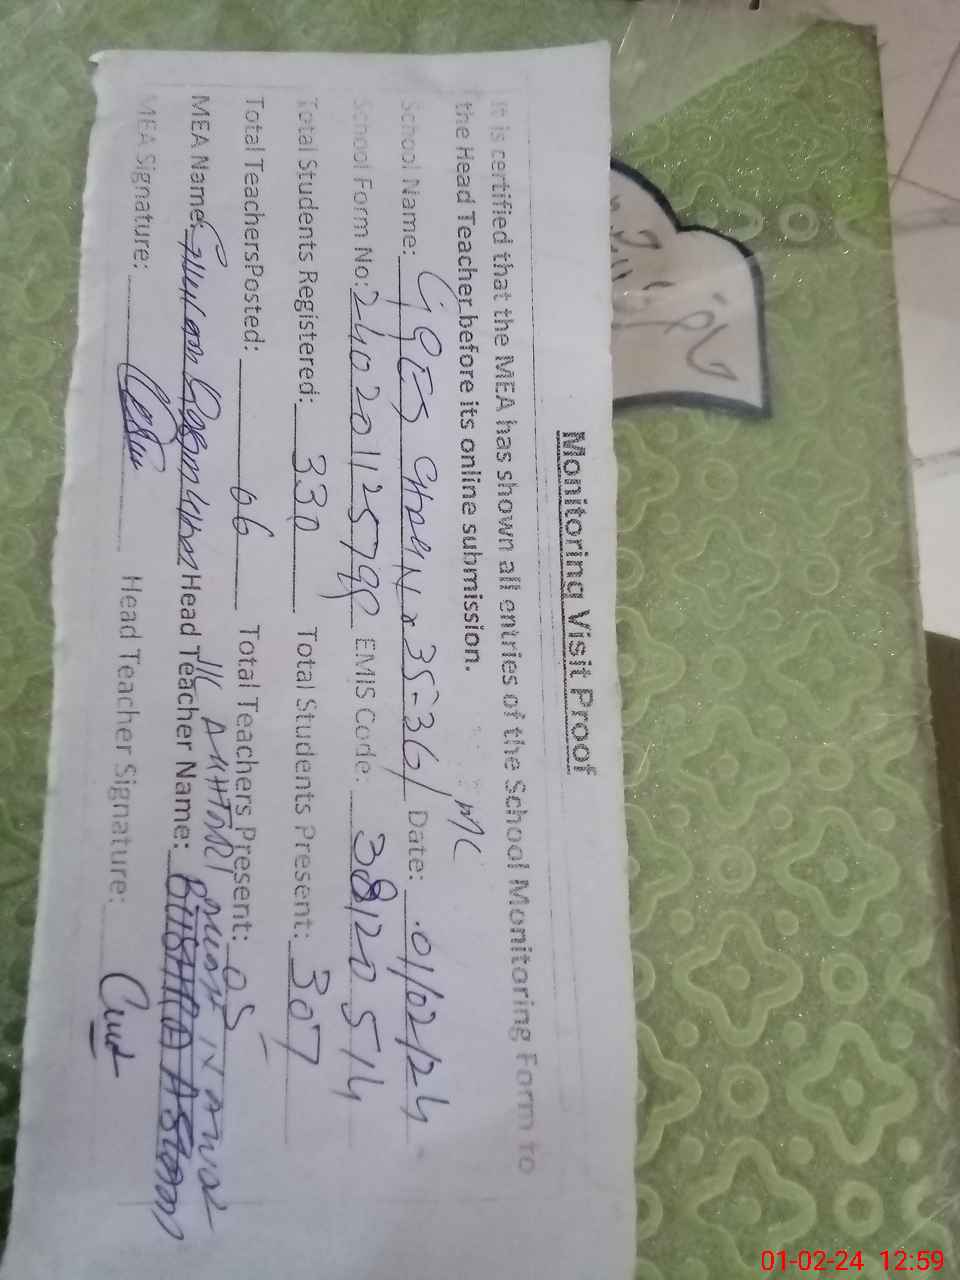 Monitoring Visit Proof
It is certified that the MEA has shown all entries of the School Monitoring Form to
the Head Teacher before its online submission.
School Name: GGES CHAK No 35-36/ ML Date: 01/02/24
School Form No: 2402011257 EMIS Code: 38120514
Total Students Registered: 330 Total Students Present: 307
Total TeachersPosted: 06 Total Teachers Present: 05
MEA Name: Head Teacher Name: BUSHRA ASLAM
MEA Signature: Head Teacher Signature:
01-02-24 12:59